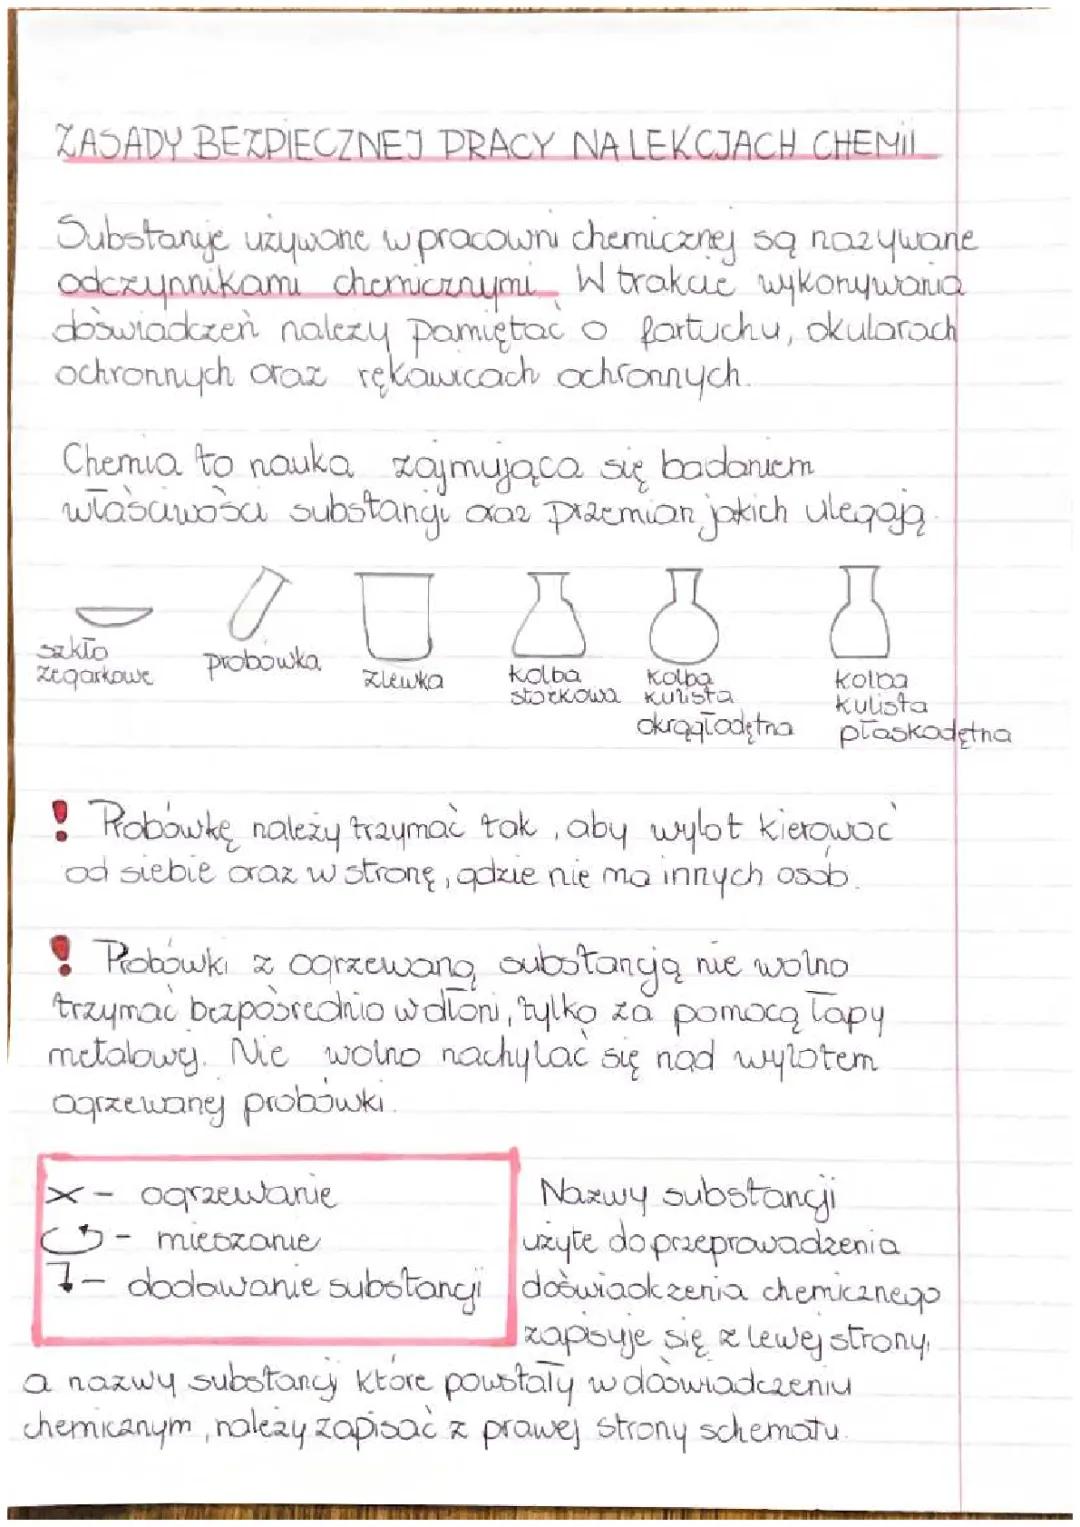 ZASADY BEZPIECZNEJ PRACY NA LEKCJACH CHEMII
Substancje używane w pracowni chemicznej są nazywane
odczynnikami chemicznymi. W trakcie wykonywania
doświadczeń należy pamiętać o fartuchu, okularach
ochronnych oraz rękawicach ochronnych.
Chemia to nauka zajmująca się badaniem
właściwości substancji oraz przemian jakich ulegają.
szkło
zegarkowe
probówka
zlewka
kolba
stożkowa
kolba
kulista
okrągłodętna
kolba
kulista
płaskodętna
! Probówkę należy trzymać tak, aby wylot kierować
od siebie oraz w stronę, gdzie nie ma innych osób.
! Probówki z ogrzewaną substancją nie wolno
trzymać bezpośrednio w dłoni, tylko za pomocą łapy
metalowej. Nie wolno nachylać się nad wylotem
ogrzewanej probówki.
x - ogrzewanie
- mieszanie
- dodawanie substancji
Nazwy substancji
użyte do przeprowadzenia
doświadczenia chemicznego
zapisuje się z lewej strony,
a nazwy substancji które powstały w doświadczeniu
chemicznym, należy zapisać z prawej strony schematu.